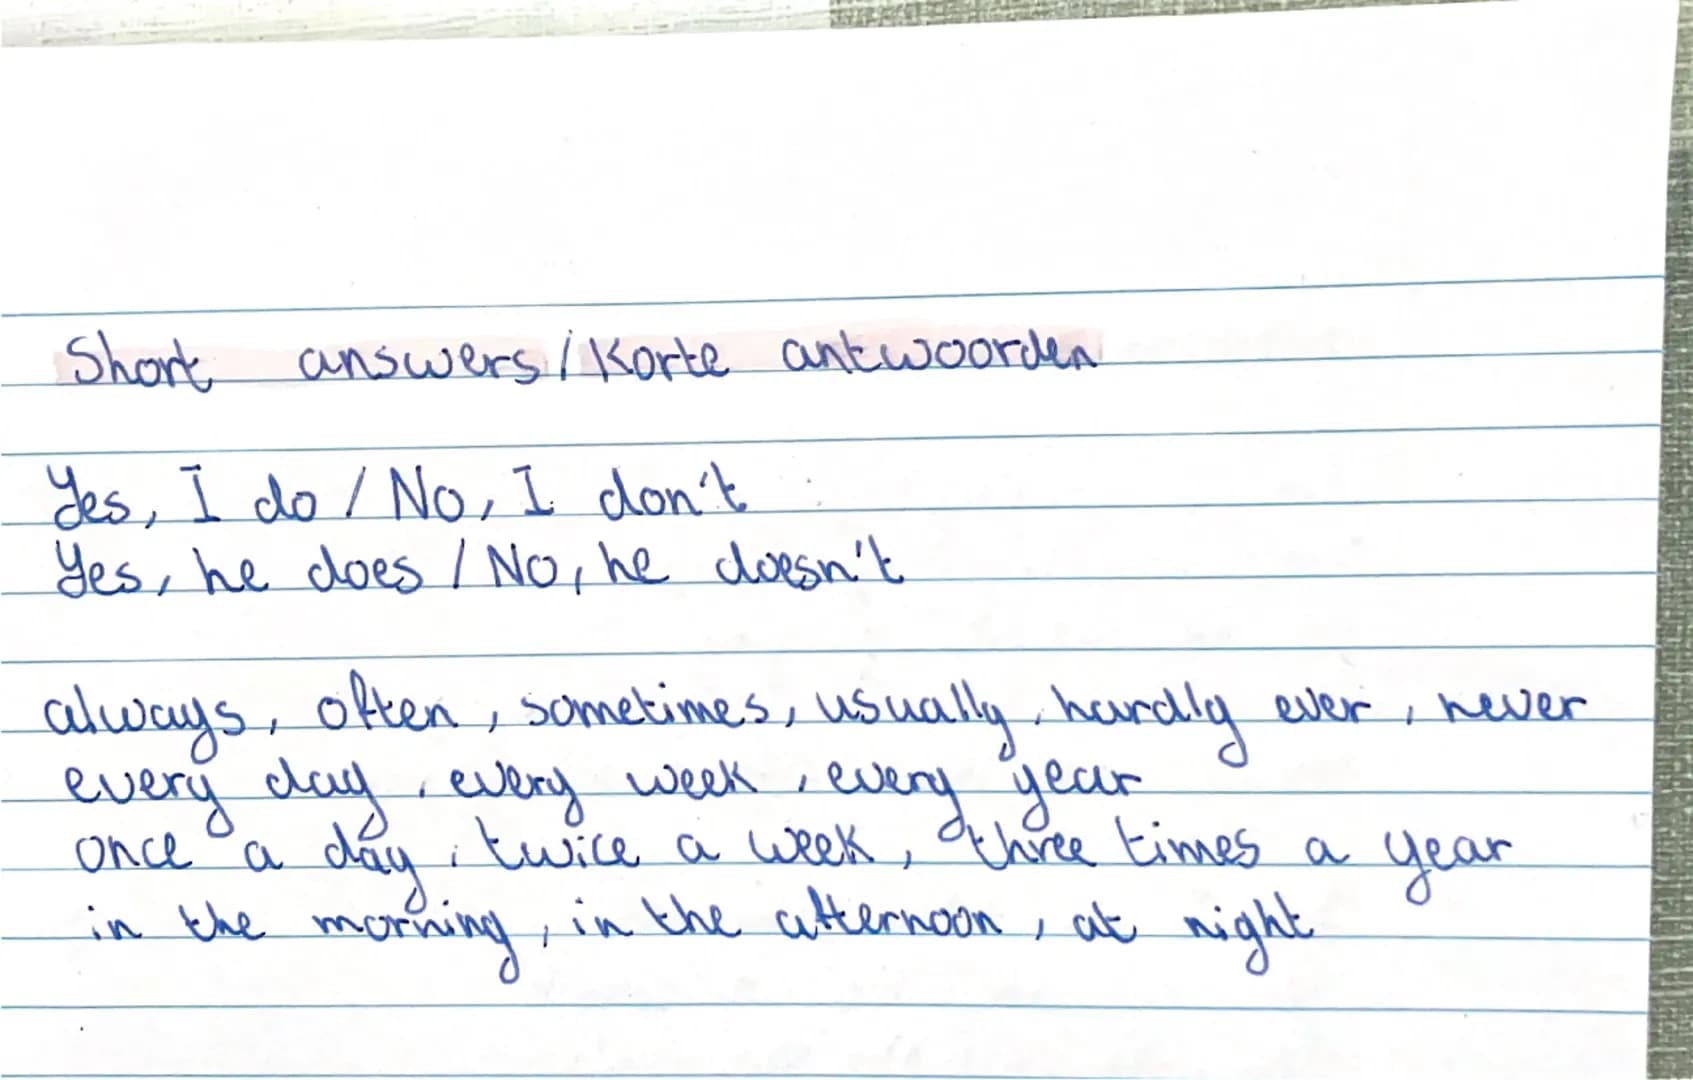 Short answers / Korte antwoorden
Yes, I do / No, I don't
Yes, he does / No, he doesn't
always, often, sometimes, usually, hardly ever, never
every day, every week, every year
once a day, twice a week, three times a year
in the morning, in the afternoon, at night